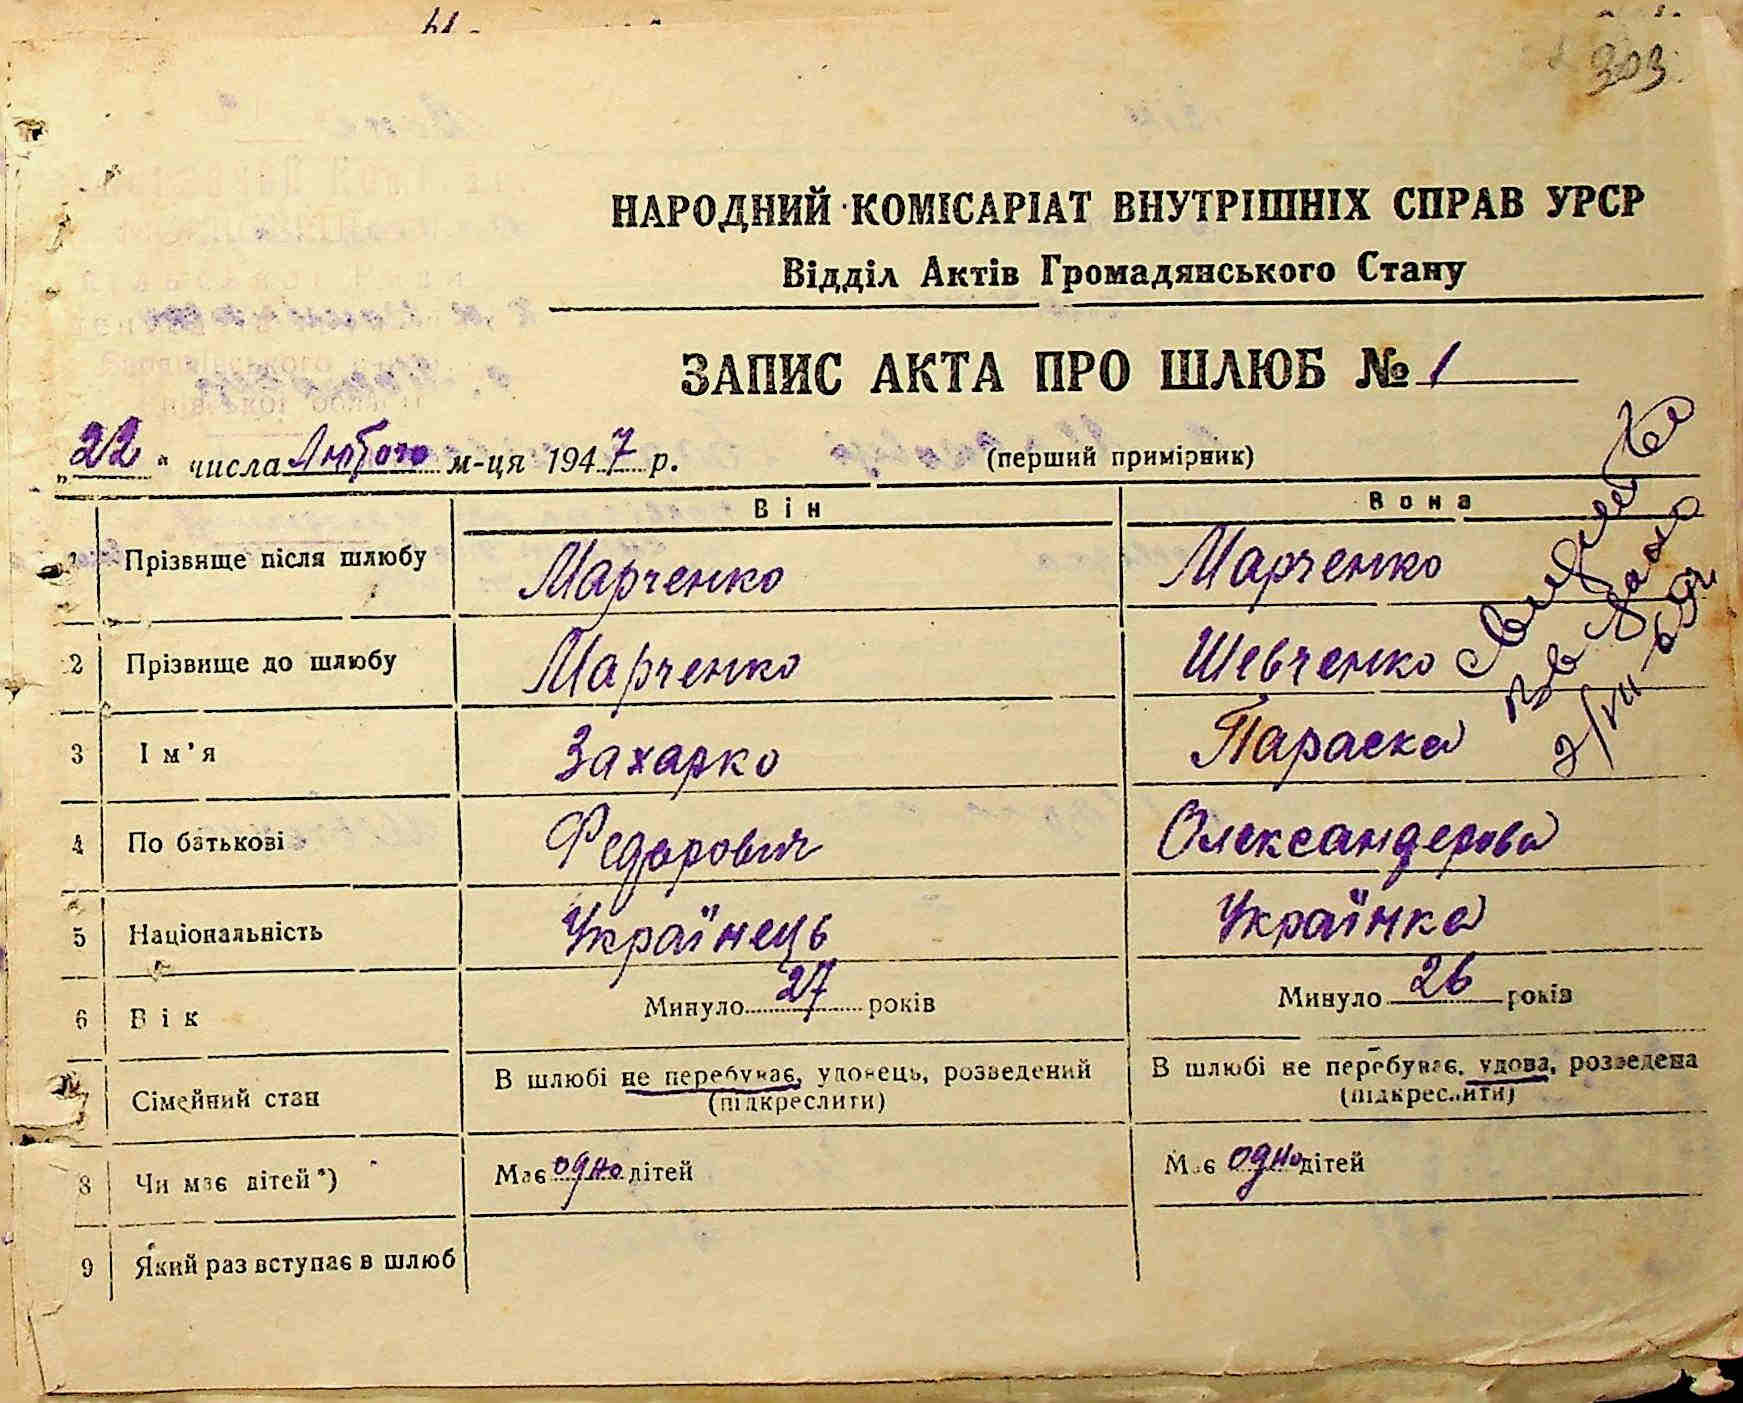 303
НАРОДНИЙ КОМІСАРІАТ ВНУТРІШНІХ СПРАВ УРСР
Відділ Актів Громадянського Стану
ЗАПИС АКТА ПРО ШЛЮБ № 1
„22“ числа Лютого м-ця 1947 р. (перший примірник)
Він Вона
1 Прізвище після шлюбу Марченко Марченко
2 Прізвище до шлюбу Марченко Шевченко
3 Ім'я Захарко Параска
4 По батькові Федорович Олександерова
5 Національність Українець Українка
6 Вік Минуло 27 років Минуло 26 років
7 Сімейний стан В шлюбі не перебуває, удовець, розведений В шлюбі не перебуває, удова, розведена
(підкреслити) (підкреслити)
8 Чи має дітей*) Має одно дітей Має одно дітей
9 Який раз вступає в шлюб